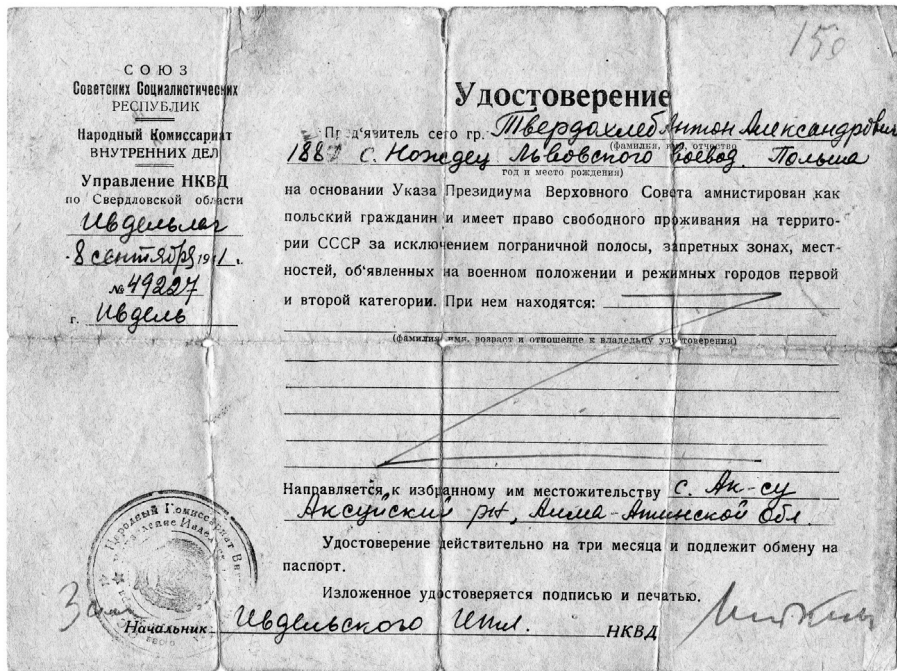 150
СОЮЗ
Советских Социалистических
РЕСПУБЛИК
Народный Комиссариат
ВНУТРЕННИХ ДЕЛ
Управление НКВД
по Свердловской области
Ивдельлаг
8 сентября 1941 г.
№ 49227
г. Ивдель
Удостоверение
Пред'явитель сего гр. Твердохлеб Антон Александрович
(фамилия, имя, отчество
1887 с. Нождец Львовского воевод. Польша
год и место рождения)
на основании Указа Президиума Верховного Совета амнистирован как
польский гражданин и имеет право свободного проживания на террито-
рии СССР за исключением пограничной полосы, запретных зонах, мест-
ностей, об'явленных на военном положении и режимных городов первой
и второй категории. При нем находятся:
(фамилия, имя, возраст и отношение к владельцу удостоверения)
Направляется к избранному им местожительству с. Ак-су
Аксуйский рн, Алма-Атинской обл.
Удостоверение действительно на три месяца и подлежит обмену на
паспорт.
Изложенное удостоверяется подписью и печатью.
Народный Комиссариат
Начальник Ивдельского Итл. НКВД